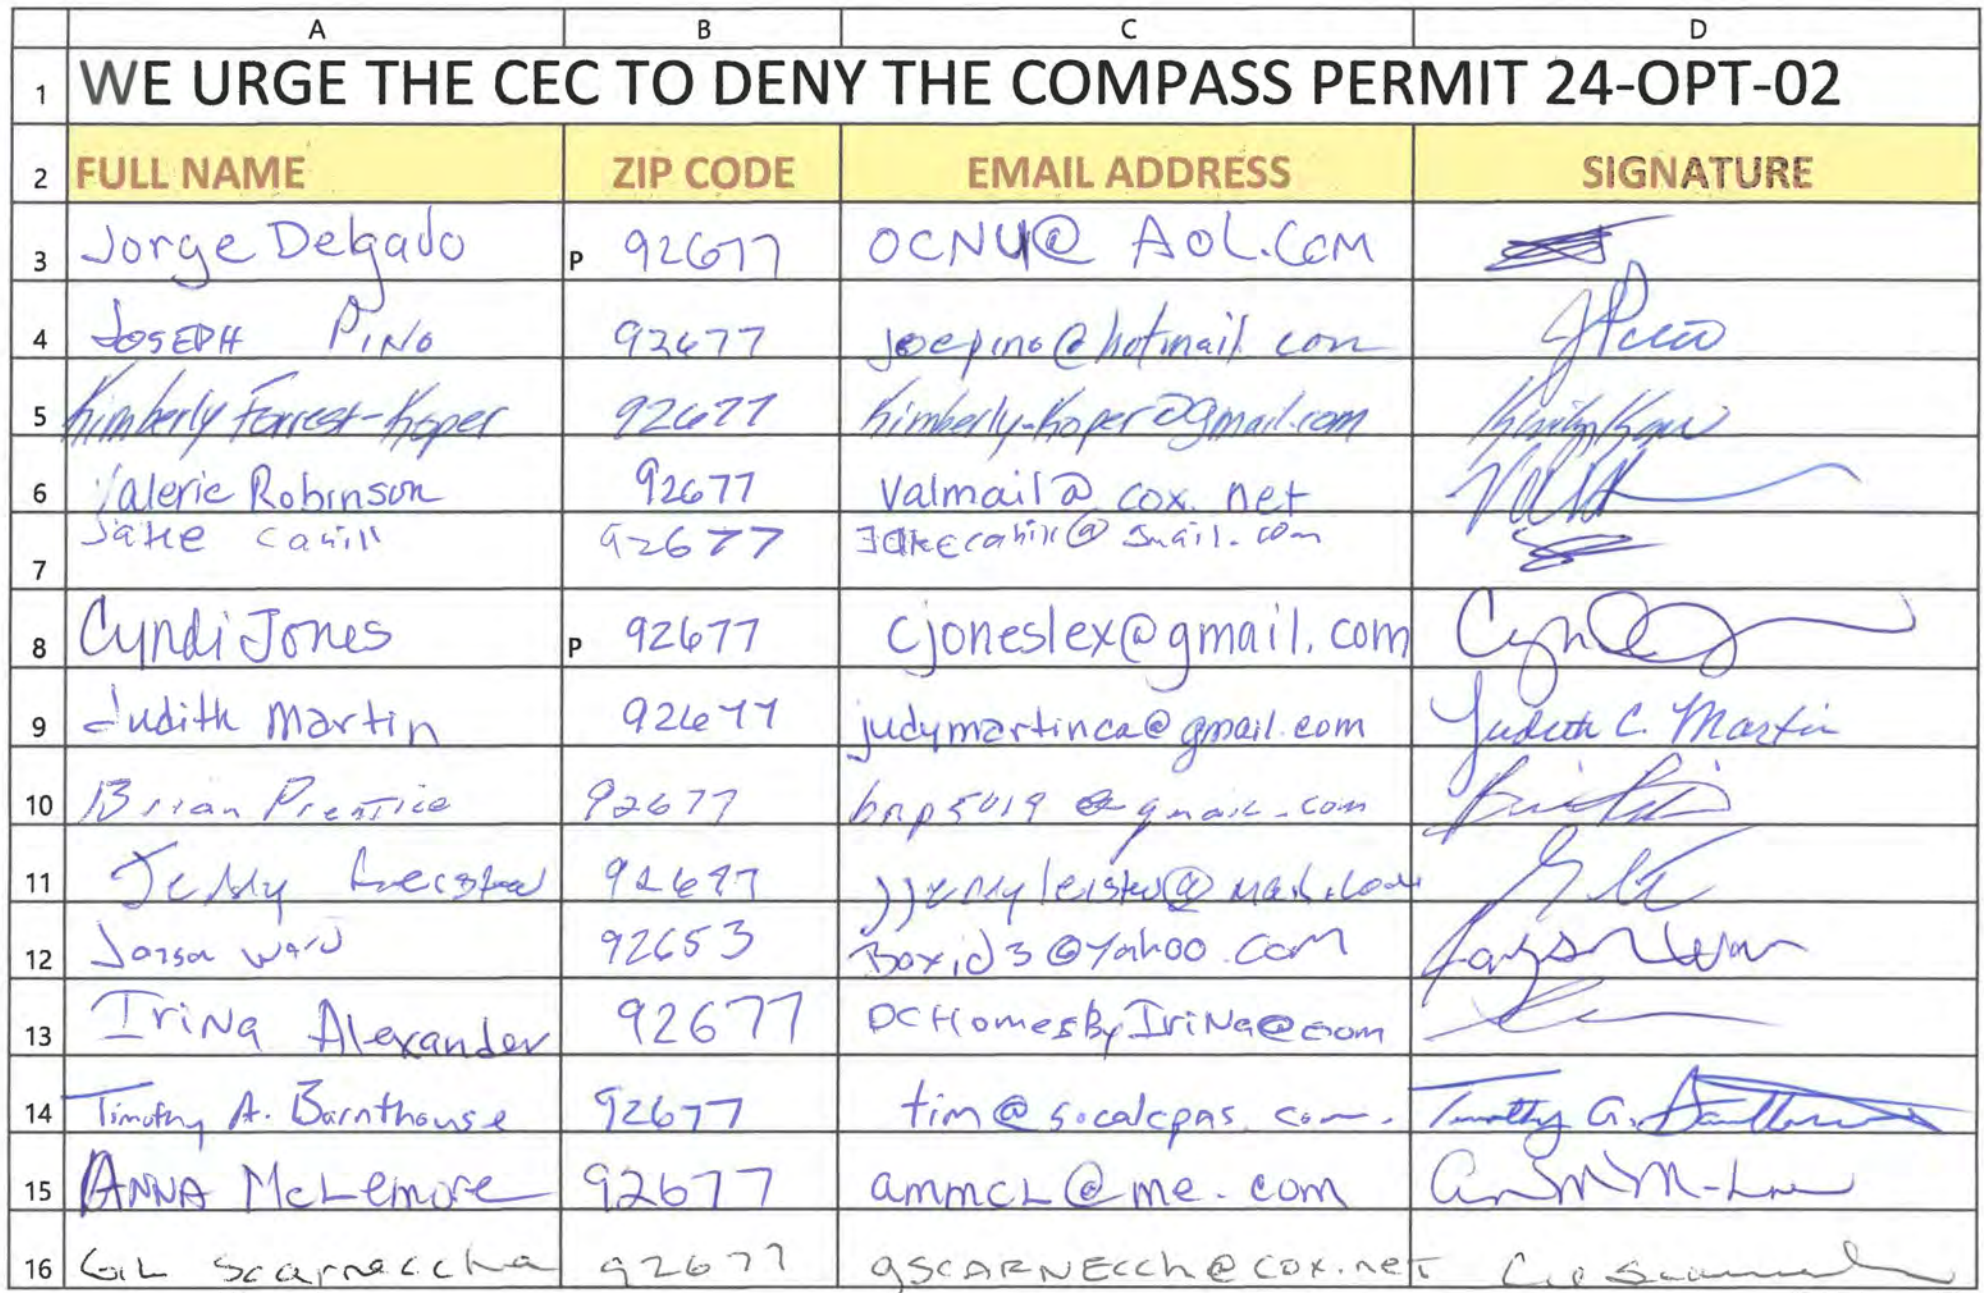 A B C D
1 WE URGE THE CEC TO DENY THE COMPASS PERMIT 24-OPT-02
2 FULL NAME ZIP CODE EMAIL ADDRESS SIGNATURE
3 Jorge Delgado P 92677 OCNU@AOL.COM
4 JOSEPH PINO 92677 joepino@hotmail.com
5 Kimberly Forrest-Koper 92677 kimberly.koper@gmail.com
6 Valerie Robinson 92677 valmail@cox.net
7 Jake Cahill 92677 Jakecahill@gmail.com
8 Cyndi Jones P 92677 cjoneslex@gmail.com
9 Judith Martin 92677 judymartinca@gmail.com Judith C. Martin
10 Brian Prentice 92677 bnp5019@gmail.com
11 92677
12 Ward 92653 Boxid3@Yahoo.com
13 IriNa Alexander 92677 OCHomesByIriNa@com
14 Timothy A. Barnthouse 92677 tim@socalcpas.com. Timothy A. Barnthouse
15 ANNA McLemore 92677 ammcL@me.com
16 GIL Scarneccha 92677 gSCARNECCh@cox.net